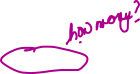 how many?